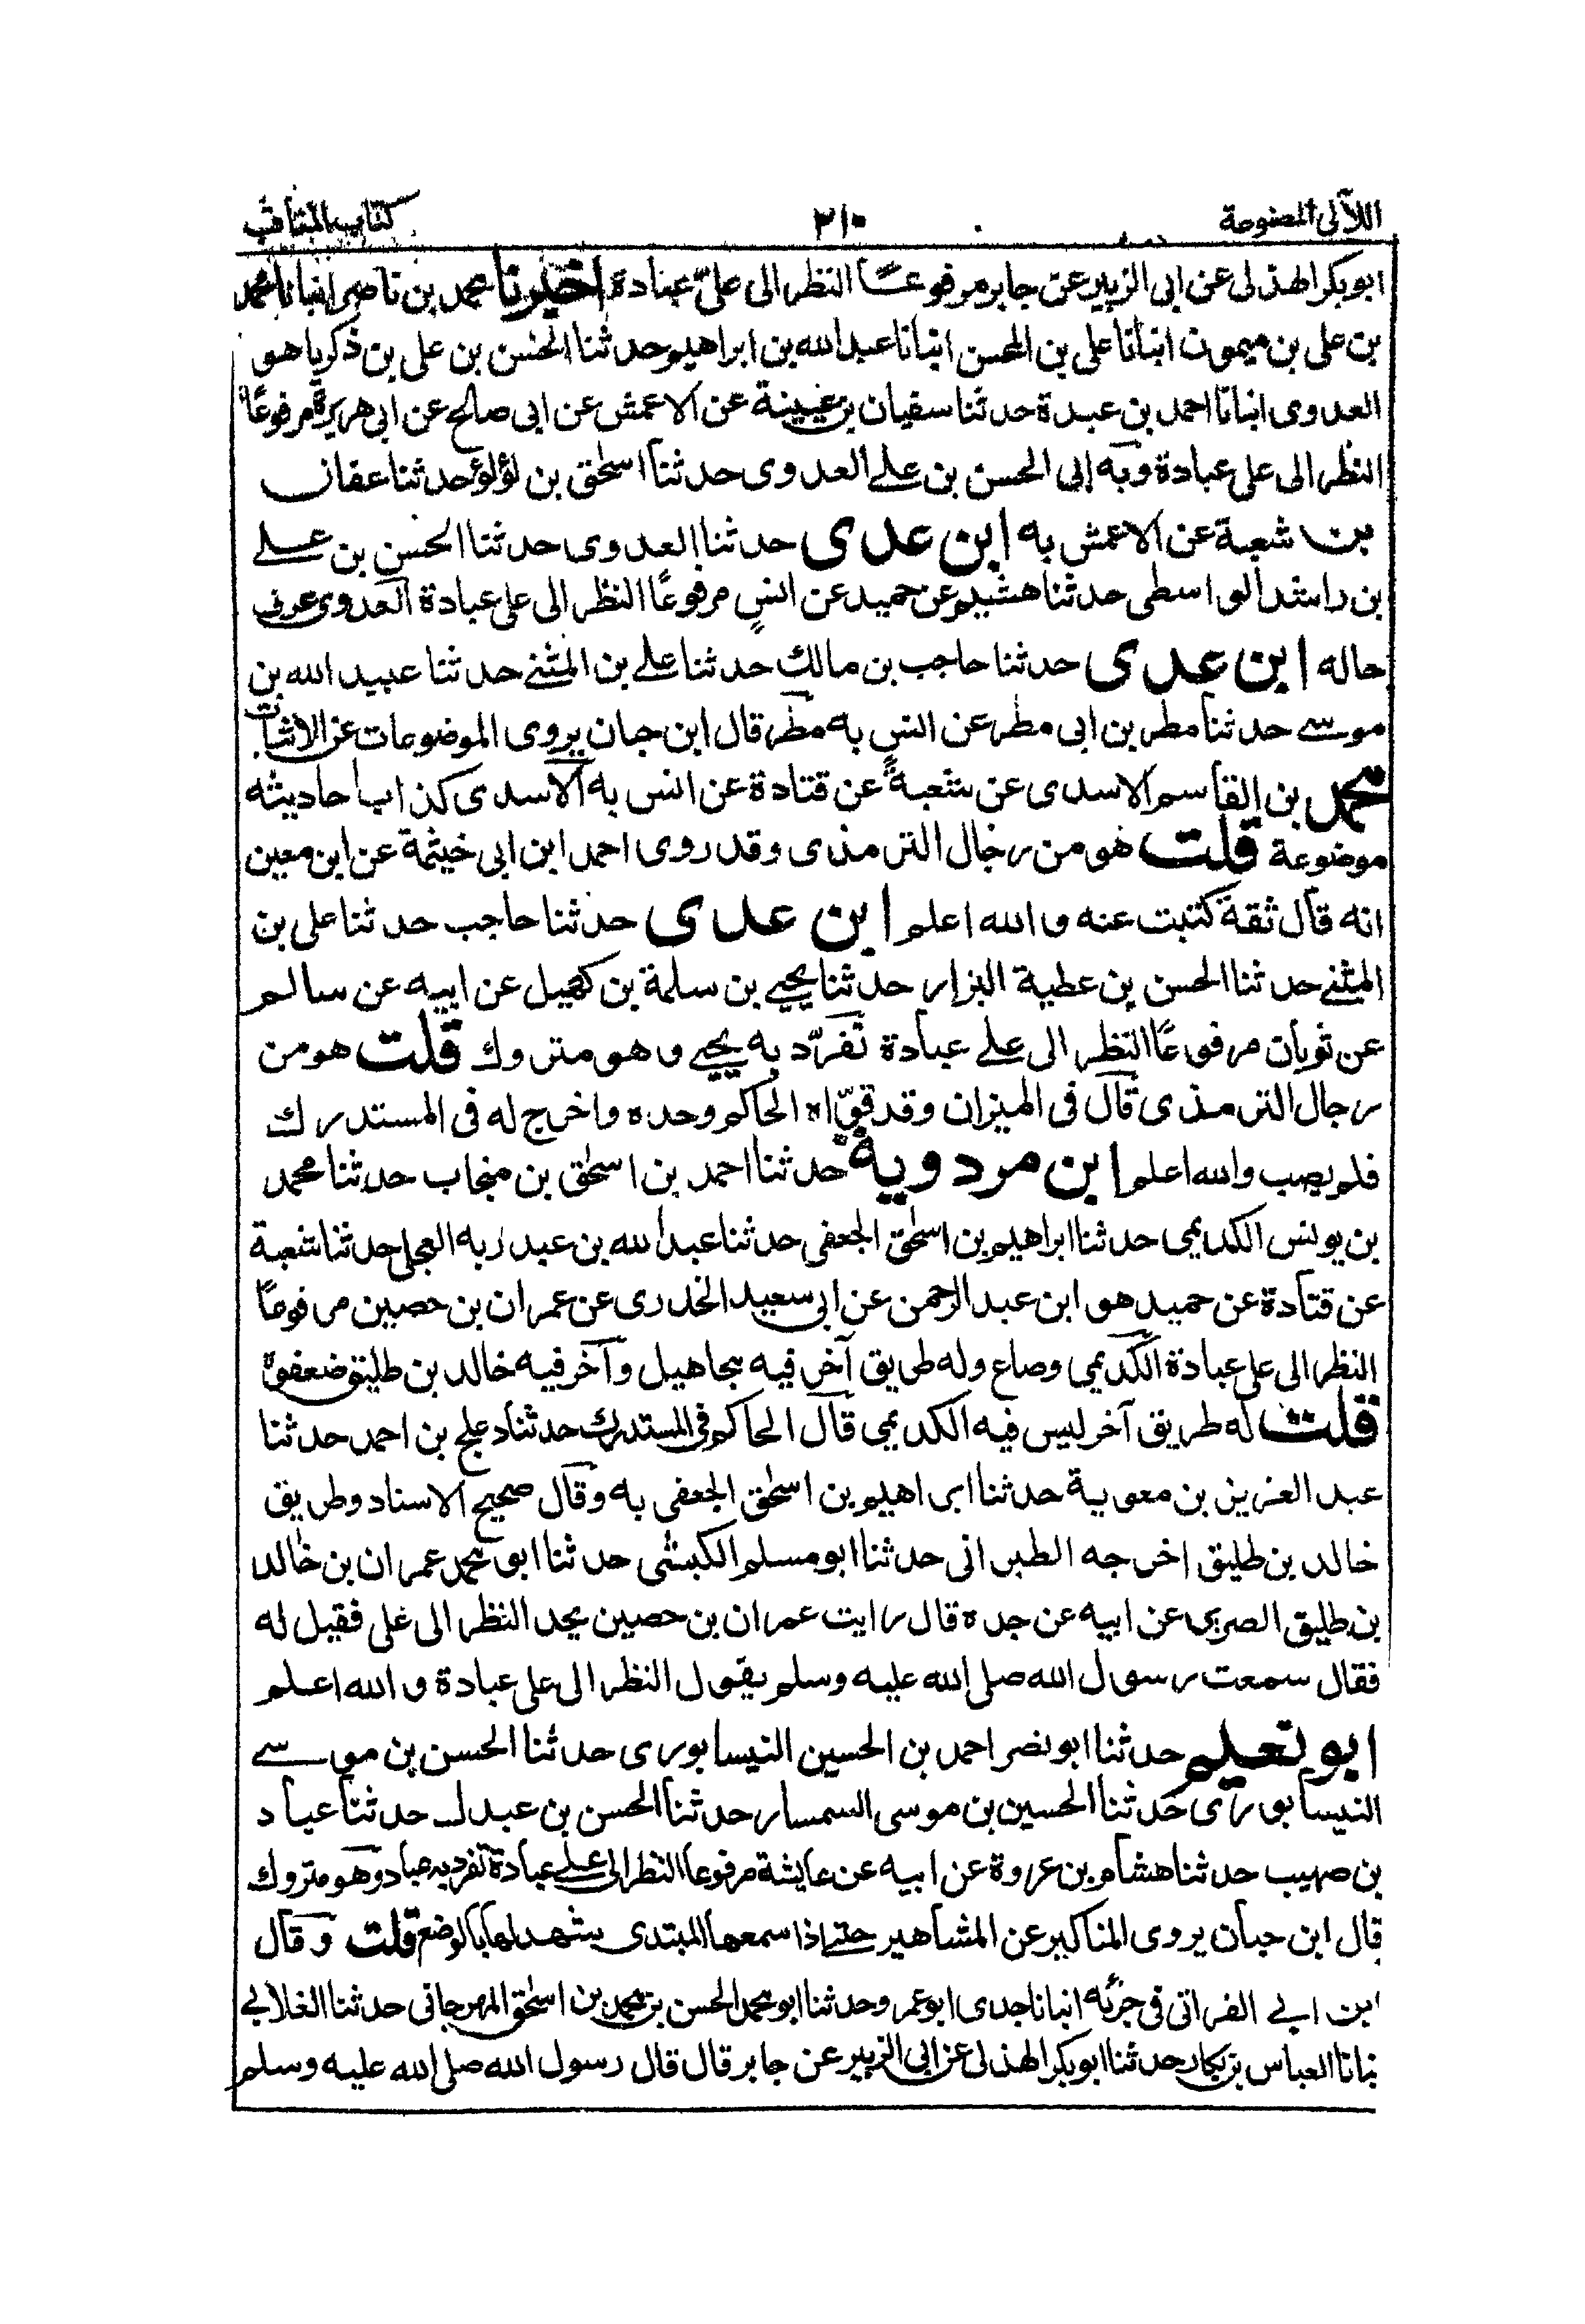 اللآلی المصنوعة ٣١٠ کتاب المناقب
ابوبکر الهذلی عن ابی الزبیر عن جابر مرفوعًا النظر الی علیّ عبادة اخبرنا محمد بن ناصر انبانا محمد
بن علی بن میمون انبانا علی بن المحسن انبانا عبد الله بن ابراهیم حدثنا الحسن بن علی بن ذکریا هو
العدوی انبانا احمد بن عبدة حدثنا سفیان بن عیینة عن الاعمش عن ابی صالح عن ابی هریرة مرفوعًا
النظر الی علی عبادة وبه إلی الحسن بن علے العدوی حدثنا اسحٰق بن لؤلؤ حدثنا عفان
بن شعبة عن الاعمش به ابن عدی حدثنا العدوی حدثنا الحسن بن علے
بن راشد الواسطی حدثنا هشیم عن حمید عن انسٍ مرفوعًا النظر الی علی عبادة العدوی عرف
حاله ابن عدی حدثنا حاجب بن مالك حدثنا علے بن المثنے حدثنا عبید الله بن
موسے حدثنا مطر بن ابی مطر عن انسٍ به مطر قال ابن حبان یروی الموضوعات عن الاثبات
محمد بن القاسم الاسدی عن شعبة عن قتادة عن انس به الاسدی کذاب احادیثه
موضوعة قلت هو من رجال الترمذی وقد روی احمد ابن ابی خیثمة عن ابن معین
انه قال ثقة کتبت عنه والله اعلم ابن عدی حدثنا حاجب حدثنا علی بن
المثنے حدثنا الحسن بن عطیة البزار حدثنا یحیے بن سلمة بن کهیل عن ابیه عن سالم
عن ثوبان مرفوعًا النظر الی علے عبادة تفرّد به یحیے وهو متروك قلت هو من
رجال الترمذی قال فی المیزان وقد قوّاه الحاکم وحده واخرج له فی المستدرك
فلم یصب والله اعلم ابن مردویة حدثنا احمد بن اسحٰق بن منجاب حدثنا محمد
بن یونس الکدیمی حدثنا ابراهیم بن اسحٰق الجعفی حدثنا عبد الله بن عبد ربه العجلی حدثنا شعبة
عن قتادة عن حمید هو ابن عبد الرحمن عن ابی سعید الخدری عن عمران بن حصین مرفوعًا
النظر الی علی عبادة الکدیمی وضاع وله طریق آخر فیه مجاهیل وآخر فیه خالد بن طلیق ضعفوه
قلت له طریق آخر لیس فیه الکدیمی قال الحاکم فی المستدرك حدثنا دعلج بن احمد حدثنا
عبد العزیز بن معویة حدثنا ابراهیم بن اسحٰق الجعفی به وقال صحیح الاسناد وطریق
خالد بن طلیق اخرجه الطبرانی حدثنا ابو مسلم الکبشی حدثنا ابو محمد عمران بن خالد
بن طلیق الصربی عن ابیه عن جده قال رایت عمران بن حصین یحد النظر الی علی فقیل له
فقال سمعت رسول الله صلی الله علیه وسلم یقول النظر الی علی عبادة والله اعلم
ابو نعیم حدثنا ابو نصر احمد بن الحسین النیسابوری حدثنا الحسن بن موسے
النیسابوری حدثنا الحسین بن موسی السمسار حدثنا الحسن بن عبدل حدثنا عباد
بن صهیب حدثنا هشام بن عروة عن ابیه عن عایشة مرفوعا النظر الی علے عبادة تفرد به عباد وهو متروك
قال ابن حبان یروی المناکیر عن المشاهیر حتے اذا سمعها المبتدی شهد لها بالوضع قلت وقال
ابن ابے الفراتی فی جزئه انبانا جدی ابو عمر وحدثنا ابو محمد الحسن بن محمد بن اسحٰق المهرجانی حدثنا الغلابے
نبانا العباس بن بکار حدثنا ابو بکر الهذلی عن ابی الزبیر عن جابر قال قال رسول الله صلی الله علیه وسلم